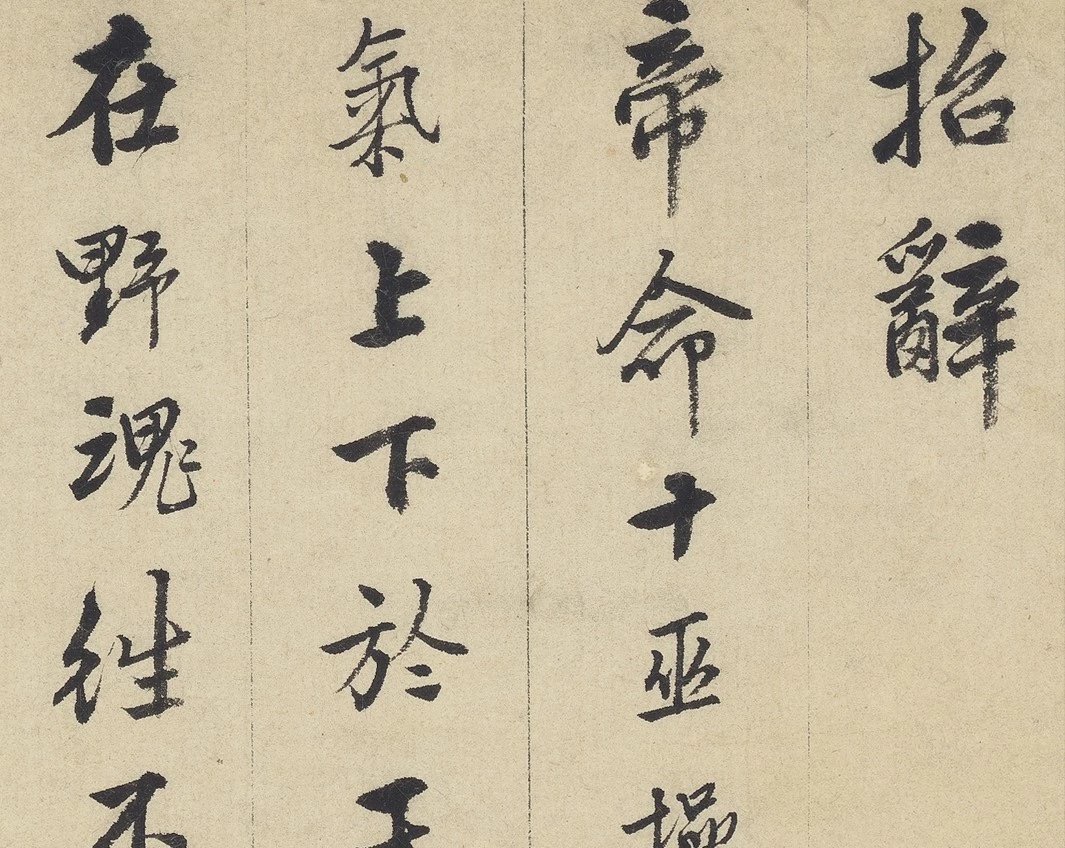 招辭
帝命十巫
氣上下於
在野魂徃不